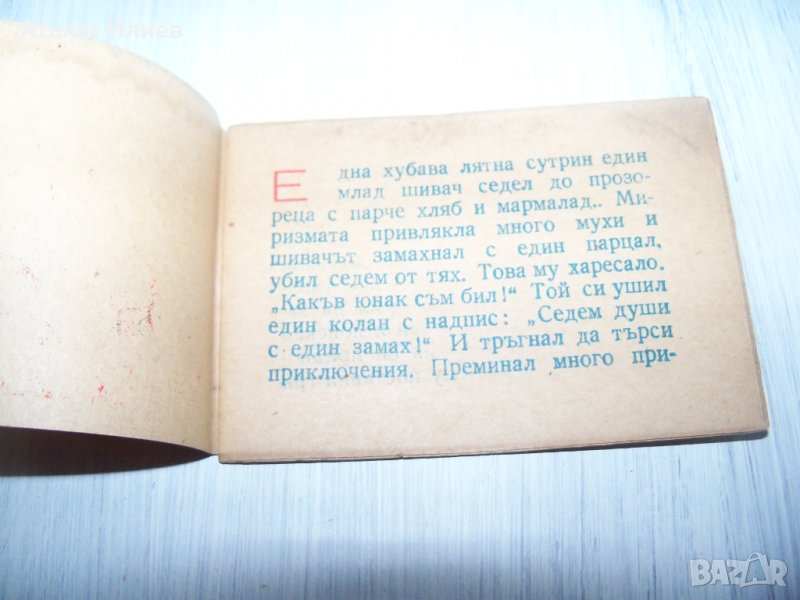 Атанас Илиев
Една хубава лятна сутрин един
млад шивач седел до прозо-
реца с парче хляб и мармалад.. Ми-
ризмата привлякла много мухи и
шивачът замахнал с един парцал,
убил седем от тях. Това му харесало.
„Какъв юнак съм бил!“ Той си ушил
един колан с надпис: „Седем души
с един замах!“ И тръгнал да търси
приключения. Преминал много при-
BAZAR